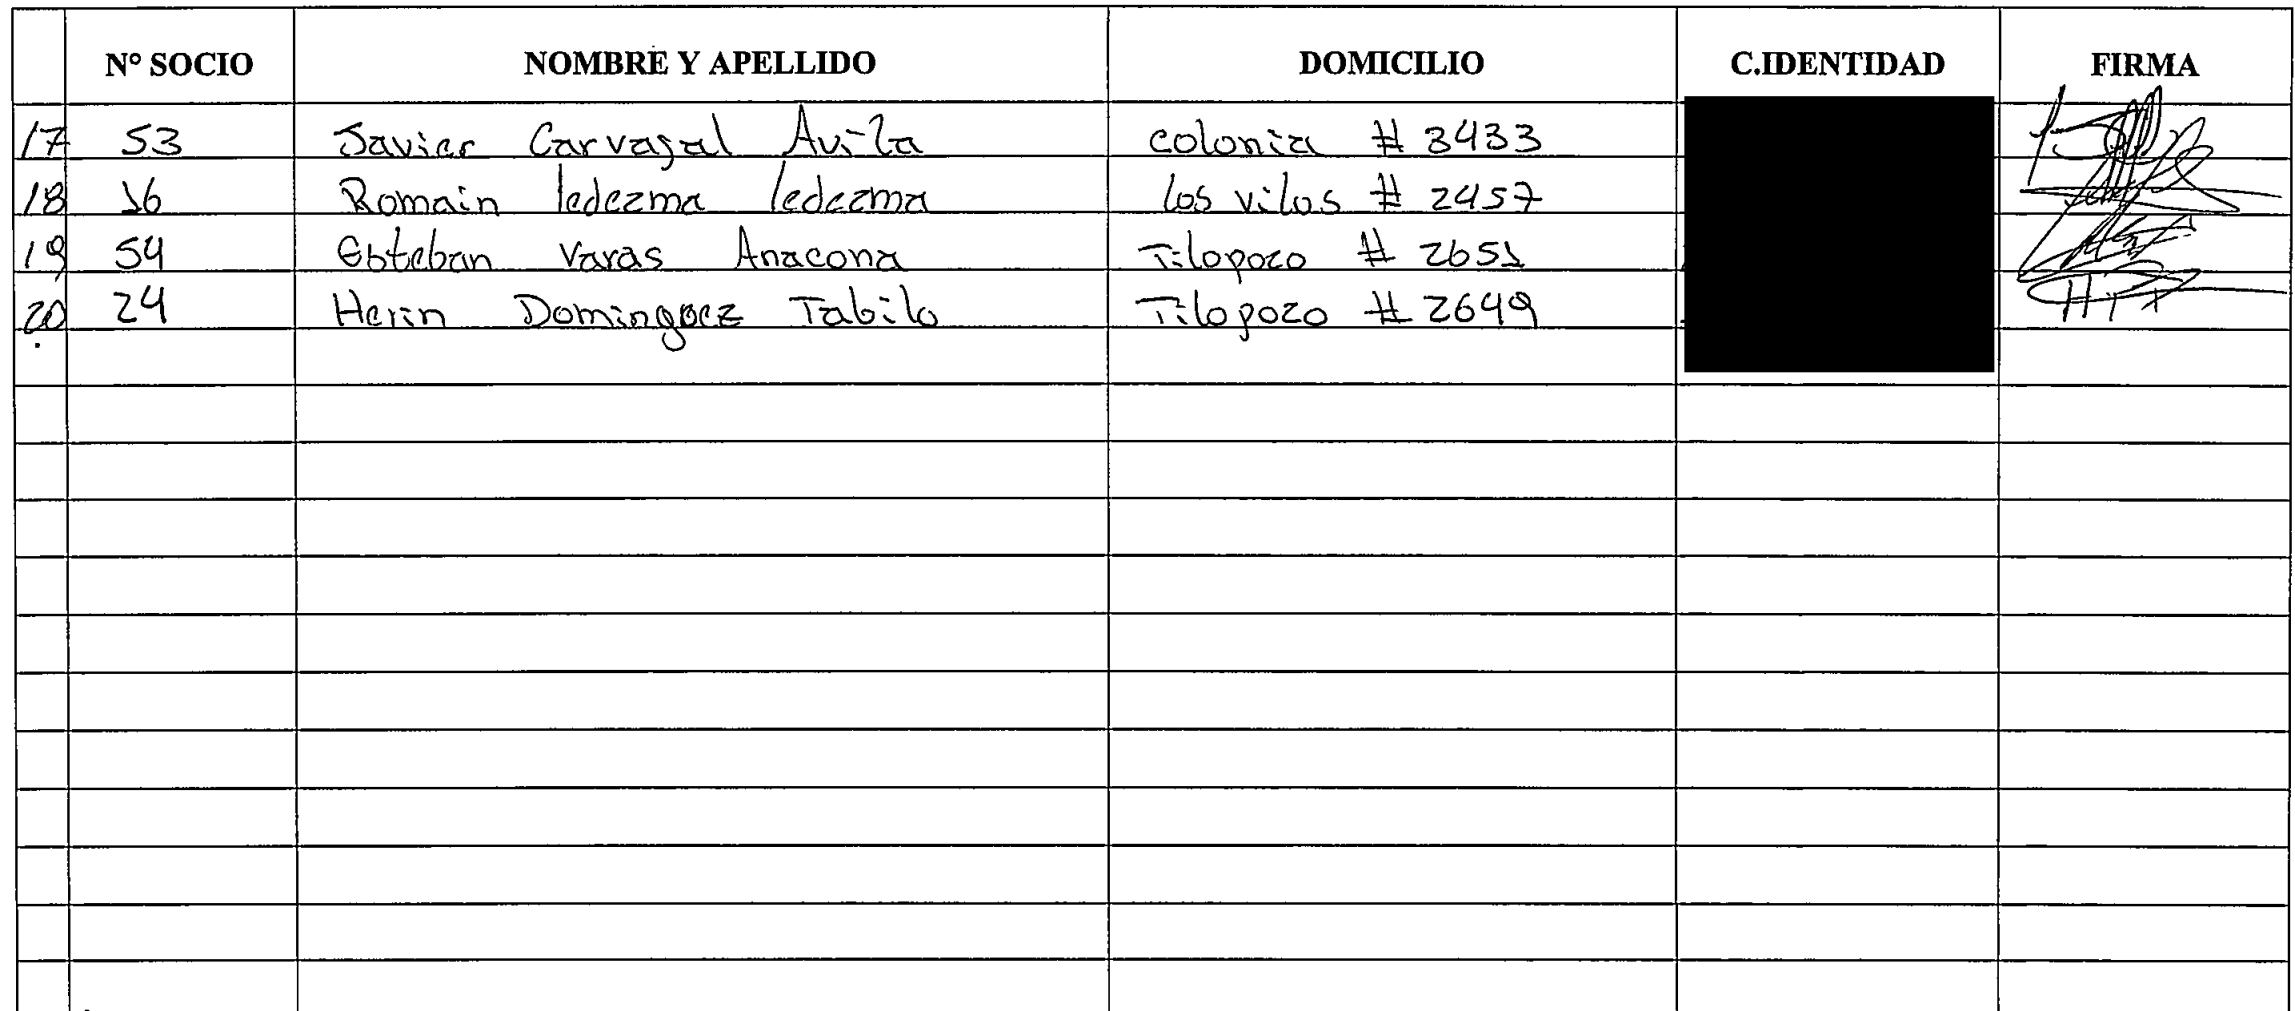 N° SOCIO NOMBRE Y APELLIDO DOMICILIO C.IDENTIDAD FIRMA
17 53 Javier Carvajal Avila colonia # 3433
18 16 Romain ledezma ledezma los vilos # 2457
19 54 Esteban Varas Anacona Tilopozo # 2651
20 24 Domingoez Tabilo Tilopozo # 2649